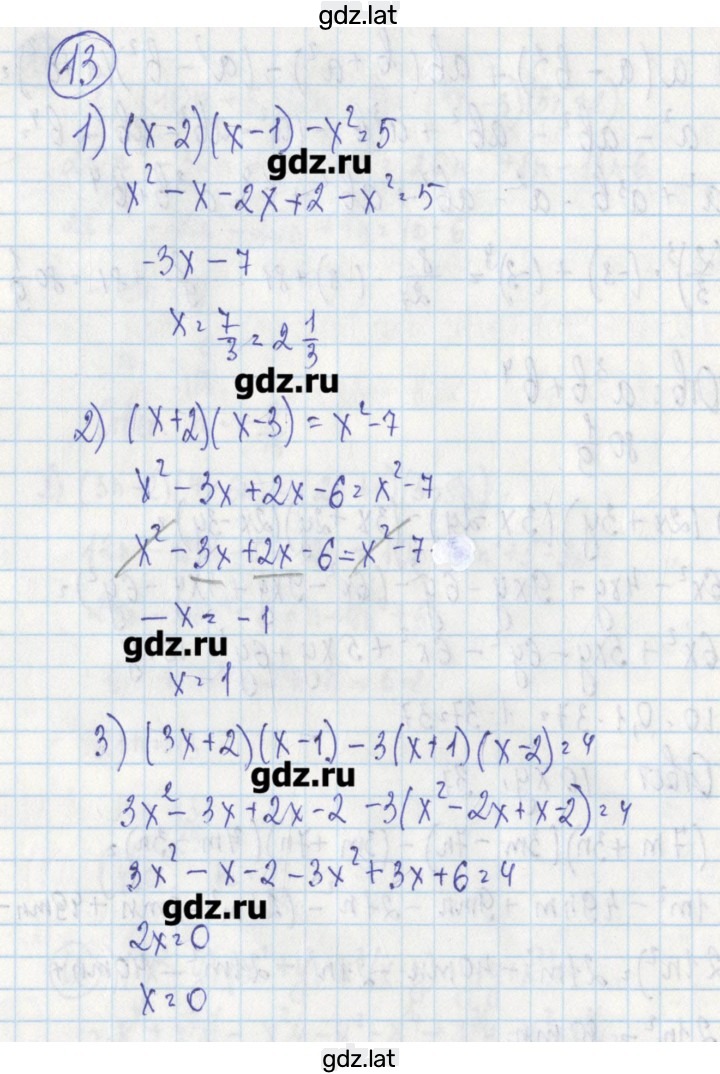 gdz.lat
13
1) (x-2)(x-1)-x²=5
gdz.ru
x²-x-2x+2-x²=5
-3x-7
x=7/3=2 1/3
gdz.ru
2) (x+2)(x-3)=x²-7
x²-3x+2x-6=x²-7
x²-3x+2x-6=x²-7
-x=-1
gdz.ru
x=1
3) (3x+2)(x-1)-3(x+1)(x-2)=4
gdz.ru
3x²-3x+2x-2-3(x²-2x+x-2)=4
3x²-x-2-3x²+3x+6=4
gdz.ru
2x=0
x=0
gdz.lat